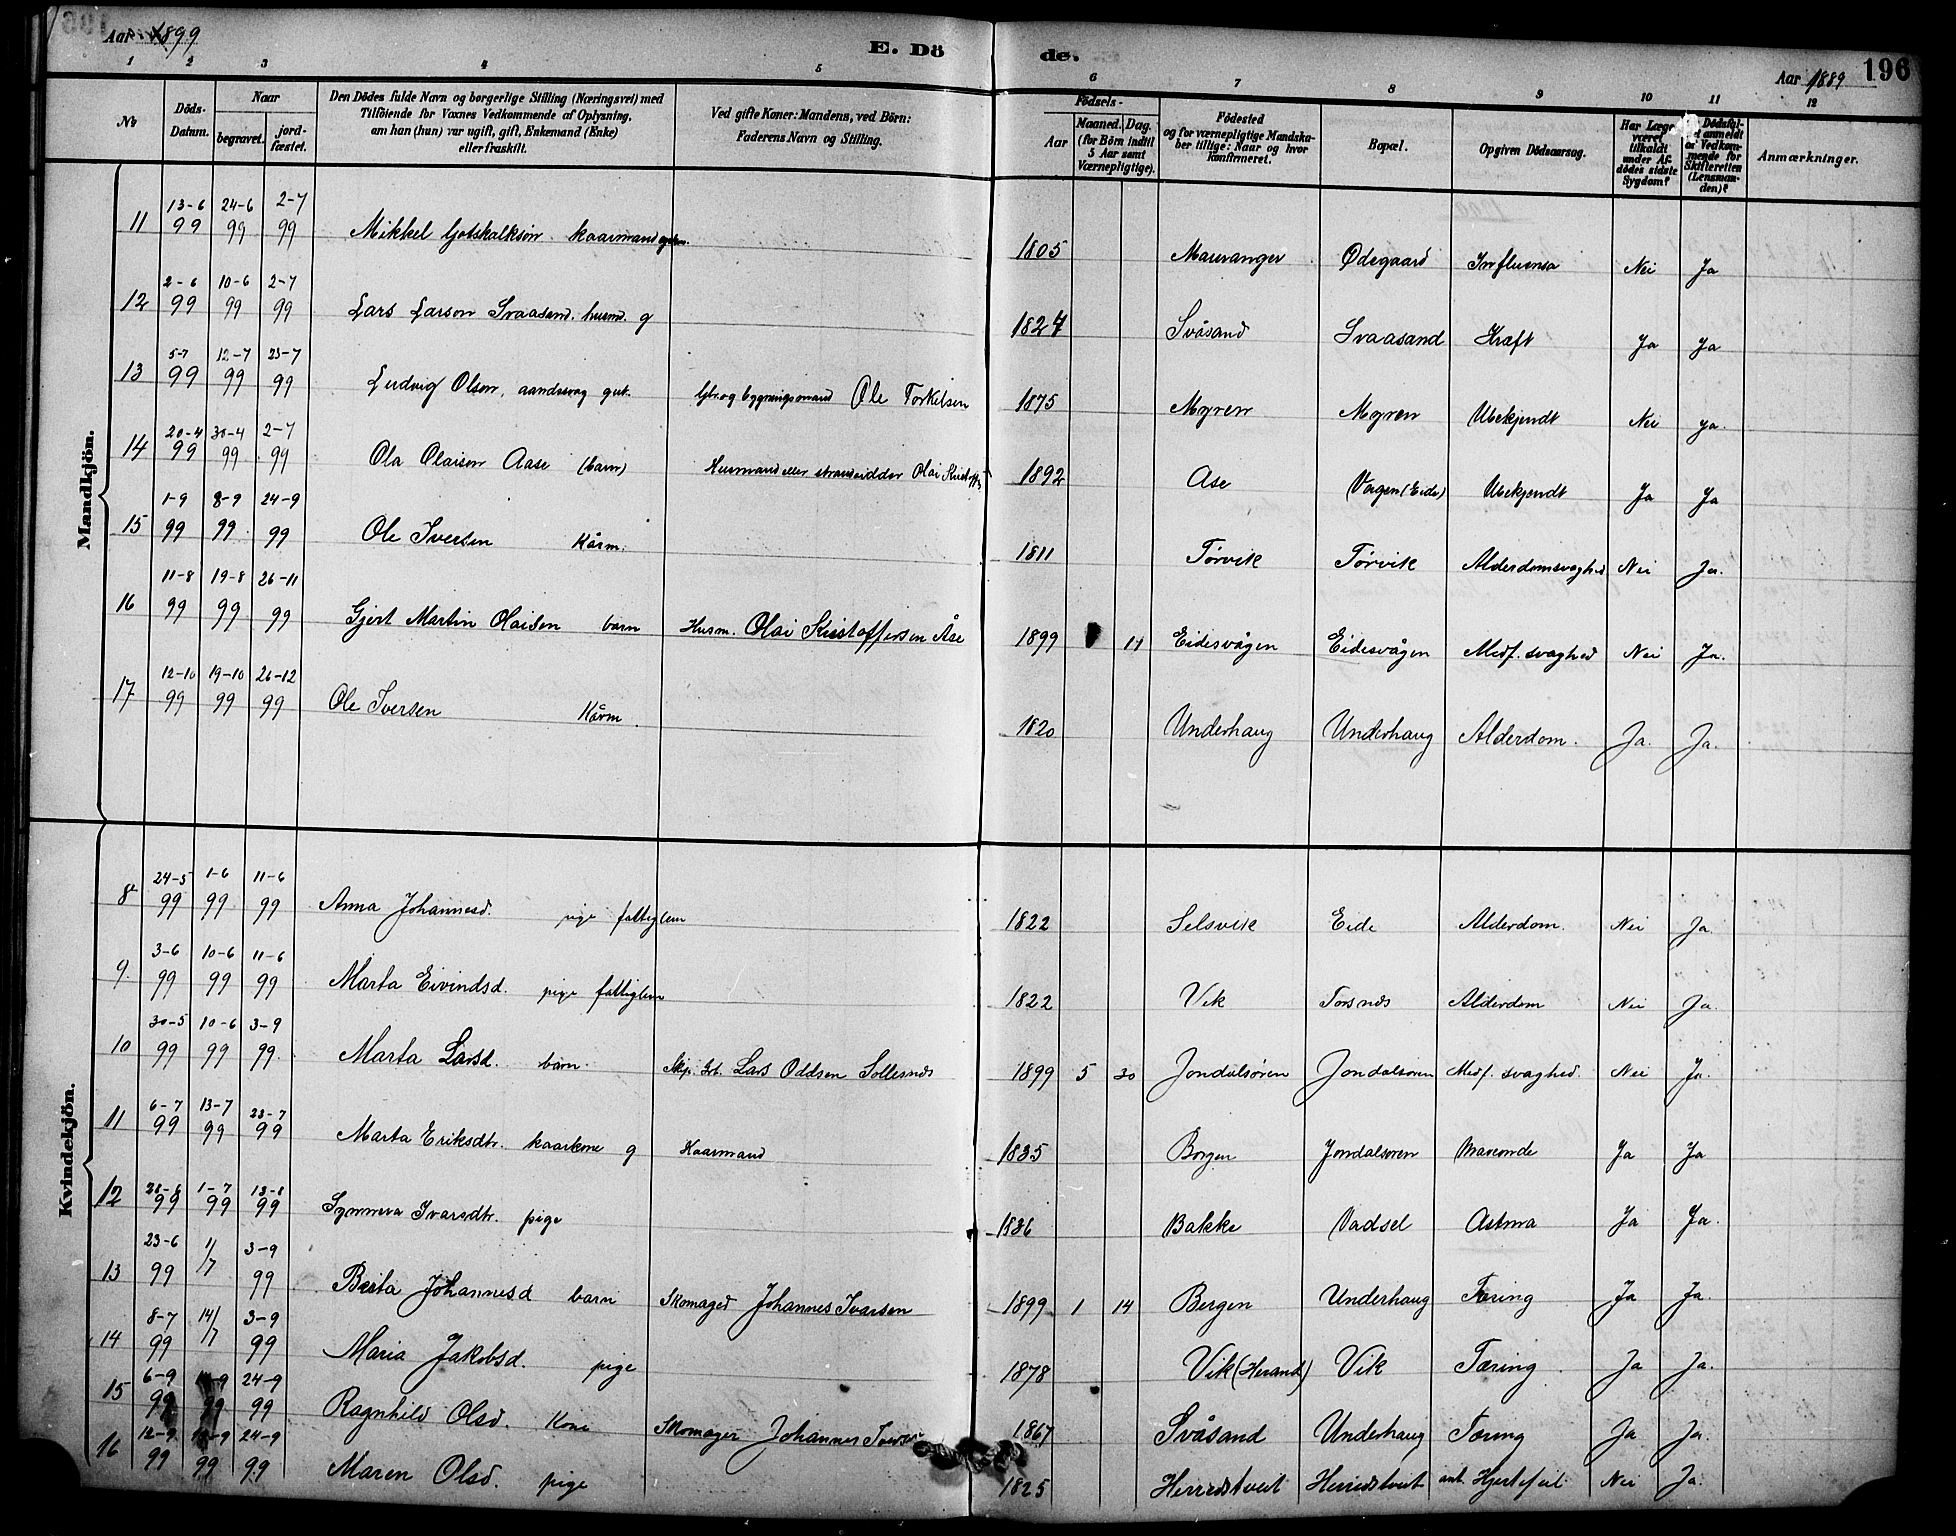 Aar 1899
E. Dö
de.
Aar 1889
196
1 2 3 4 5 6 7 8 9 10 11 12
No
Döds-Datum.
Naar
begravet.
jord-fæstet.
Den Dödes fulde Navn og borgerlige Stilling (Næringsvei) med Tilföiende for Voxnes Vedkommende af Oplysning, om han (hun) var ugift, gift, Enkemand (Enke) eller fraskilt.
Ved gifte Koner: Mandens, ved Börn: Faderens Navn og Stilling.
Födsels-
Aar
Maaned. Dag.
(for Börn indtil 5 Aar samt Værnepligtige).
Födested og for værnepligtige Mandskaber tillige: Naar og hvor konfirmeret.
Bopæl.
Opgiven Dödsaarsag.
Har Læge været tilkaldt under Afdödes sidste Sygdom?
Dödsfaldet anmeldt for Skifteretten (Lensmanden)?
Anmærkninger.
Mandkjön.
11 13-6 99 24-6 99 2-7 99 Mikkel Gotskalkson kaarmand 1805 Mauranger Ødegaard Influensa Nei Ja
12 2-6 99 10-6 99 2-7 99 Lars Larson Svaasand. husm. g 1824 Svåsand Svaasand Kræft Ja Ja
13 5-7 99 12-7 99 23-7 99 Ludvig Olson, aandssvag gut. Gbr. og bygningsmand Ole Torkelsen 1875 Myren Myren Ubekjendt Nei Ja.
14 20-4 99 30-4 99 2-7 99 Ola Olaison Aase (barn) Husmand eller strandsidder Olai 1892 Ase Vagen (Eide) Ubekjendt Ja Ja
15 1-9 99 8-9 99 24-9 99 Ole Iversen Kårm. 1811 Tørvik Tørvik Alderdomsvaghed Nei Ja.
16 11-8 99 19-8 99 26-11 99 Gjert Martin Olaisen barn Husm. Olai Kristoffersen Åse 1899 11 Eidesvågen Eidesvågen Medf. svaghed Nei Ja.
17 12-10 99 19-10 99 26-12 99 Ole Iversen Kårm. 1820 Underhaug Underhaug Alderdom. Ja. Ja.
Kvindekjön.
8 24-5 99 1-6 99 11-6 99 Anna Johannesd. pige fattiglem 1822 Selsvik Eide Alderdom. Nei Ja.
9. 3-6 99 10-6 99 11-6 99 Marta Eivindsd. pige fattiglem 1822 Vik Torsnes Alderdom Nei Ja.
10 30-5 99 10-6 99 3-9 99. Marta Larsd. barn. Lars Oddsen Sollesnes 1899 5 30 Jondalsøren Jondalsøren Medf. svaghed. Nei Ja.
11 6-7 99 13-7 99 23-7 99 Marta Eriksdtr. kaarkone g Kaarmand 1835 Borgen Jondalsøren Ja Ja
12 99 1-7 99 99 Synneva Ivarsdtr. pige 1836 Bakke Vadsel Astma Ja Ja.
13 23-6 99 1/7 3-9 99 Berta Johannesd barn Skomager Johannes Ivarsen 1899 1 14 Bergen Underhaug Tæring Ja Ja.
14 8-7 99 14/7 3-9 99 Maria Jakobsd. pige 1878 Vik (Herand) Vik Tæring Ja Ja.
15 6-9 99 99 24-9 99 Ragnhild Olsd. Kone Skomager Johannes 1867 Svåsand Underhaug Tæring Ja Ja.
16 12-9 99 99 24-9 99 Maren Olsd. pige 1825 Herredstveit Herredstveit ant. Hjertefeil Nei Ja.